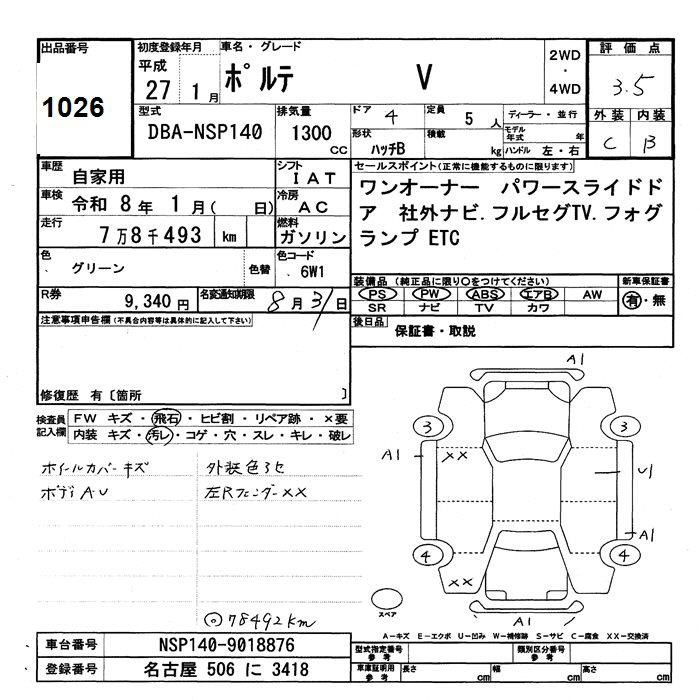 出品番号
1026
初度登録年月
平成
27 1月
車名・グレード
ポルテ V
2WD
・
4WD
評価点
3.5
外装 内装
C B
型式
DBA-NSP140
排気量
1300
CC
ドア 4
定員 5 人
ディーラー・並行
形状 ハッチB
積載 kg
モデル年式 年
ハンドル 左・右
車歴 自家用
シフト IAT
車検 令和 8年 1月( 日)
冷房 AC
走行 7万8千493 km
燃料 ガソリン
色 グリーン 色替
色コード 6W1
R券 9,340円
名変通知期限 8月31日
セールスポイント(正常に機能するものに限ります)
ワンオーナー パワースライドド
ア 社外ナビ.フルセグTV.フォグ
ランプ ETC
装備品 (純正品に限り○をつけてください)
新車保証書
PS PW ABS エアB AW
SR ナビ TV カワ
有・無
後日品 保証書・取説
注意事項申告欄(不具合内容等は具体的に記入して下さい)
修復歴 有〔箇所 〕
検査員
記入欄
FW キズ・飛石・ヒビ割・リペア跡・×要
内装 キズ・汚レ・コゲ・穴・スレ・キレ・破レ
ホイールカバーキズ 外装色アセ
ボディA・U 左Rフェンダー××
◎78492km
A1
3 3
A1 ×× U1
A1
4 4
××
A1
スペア
A-キズ E-エクボ U-凹み W-補修跡 S-サビ C-腐食 XX-交換済
車台番号 NSP140-9018876
登録番号 名古屋 506 に 3418
型式指定番号
参考
類別区分番号
参考
車庫証明用
参考
長さ cm 幅 cm 高さ cm